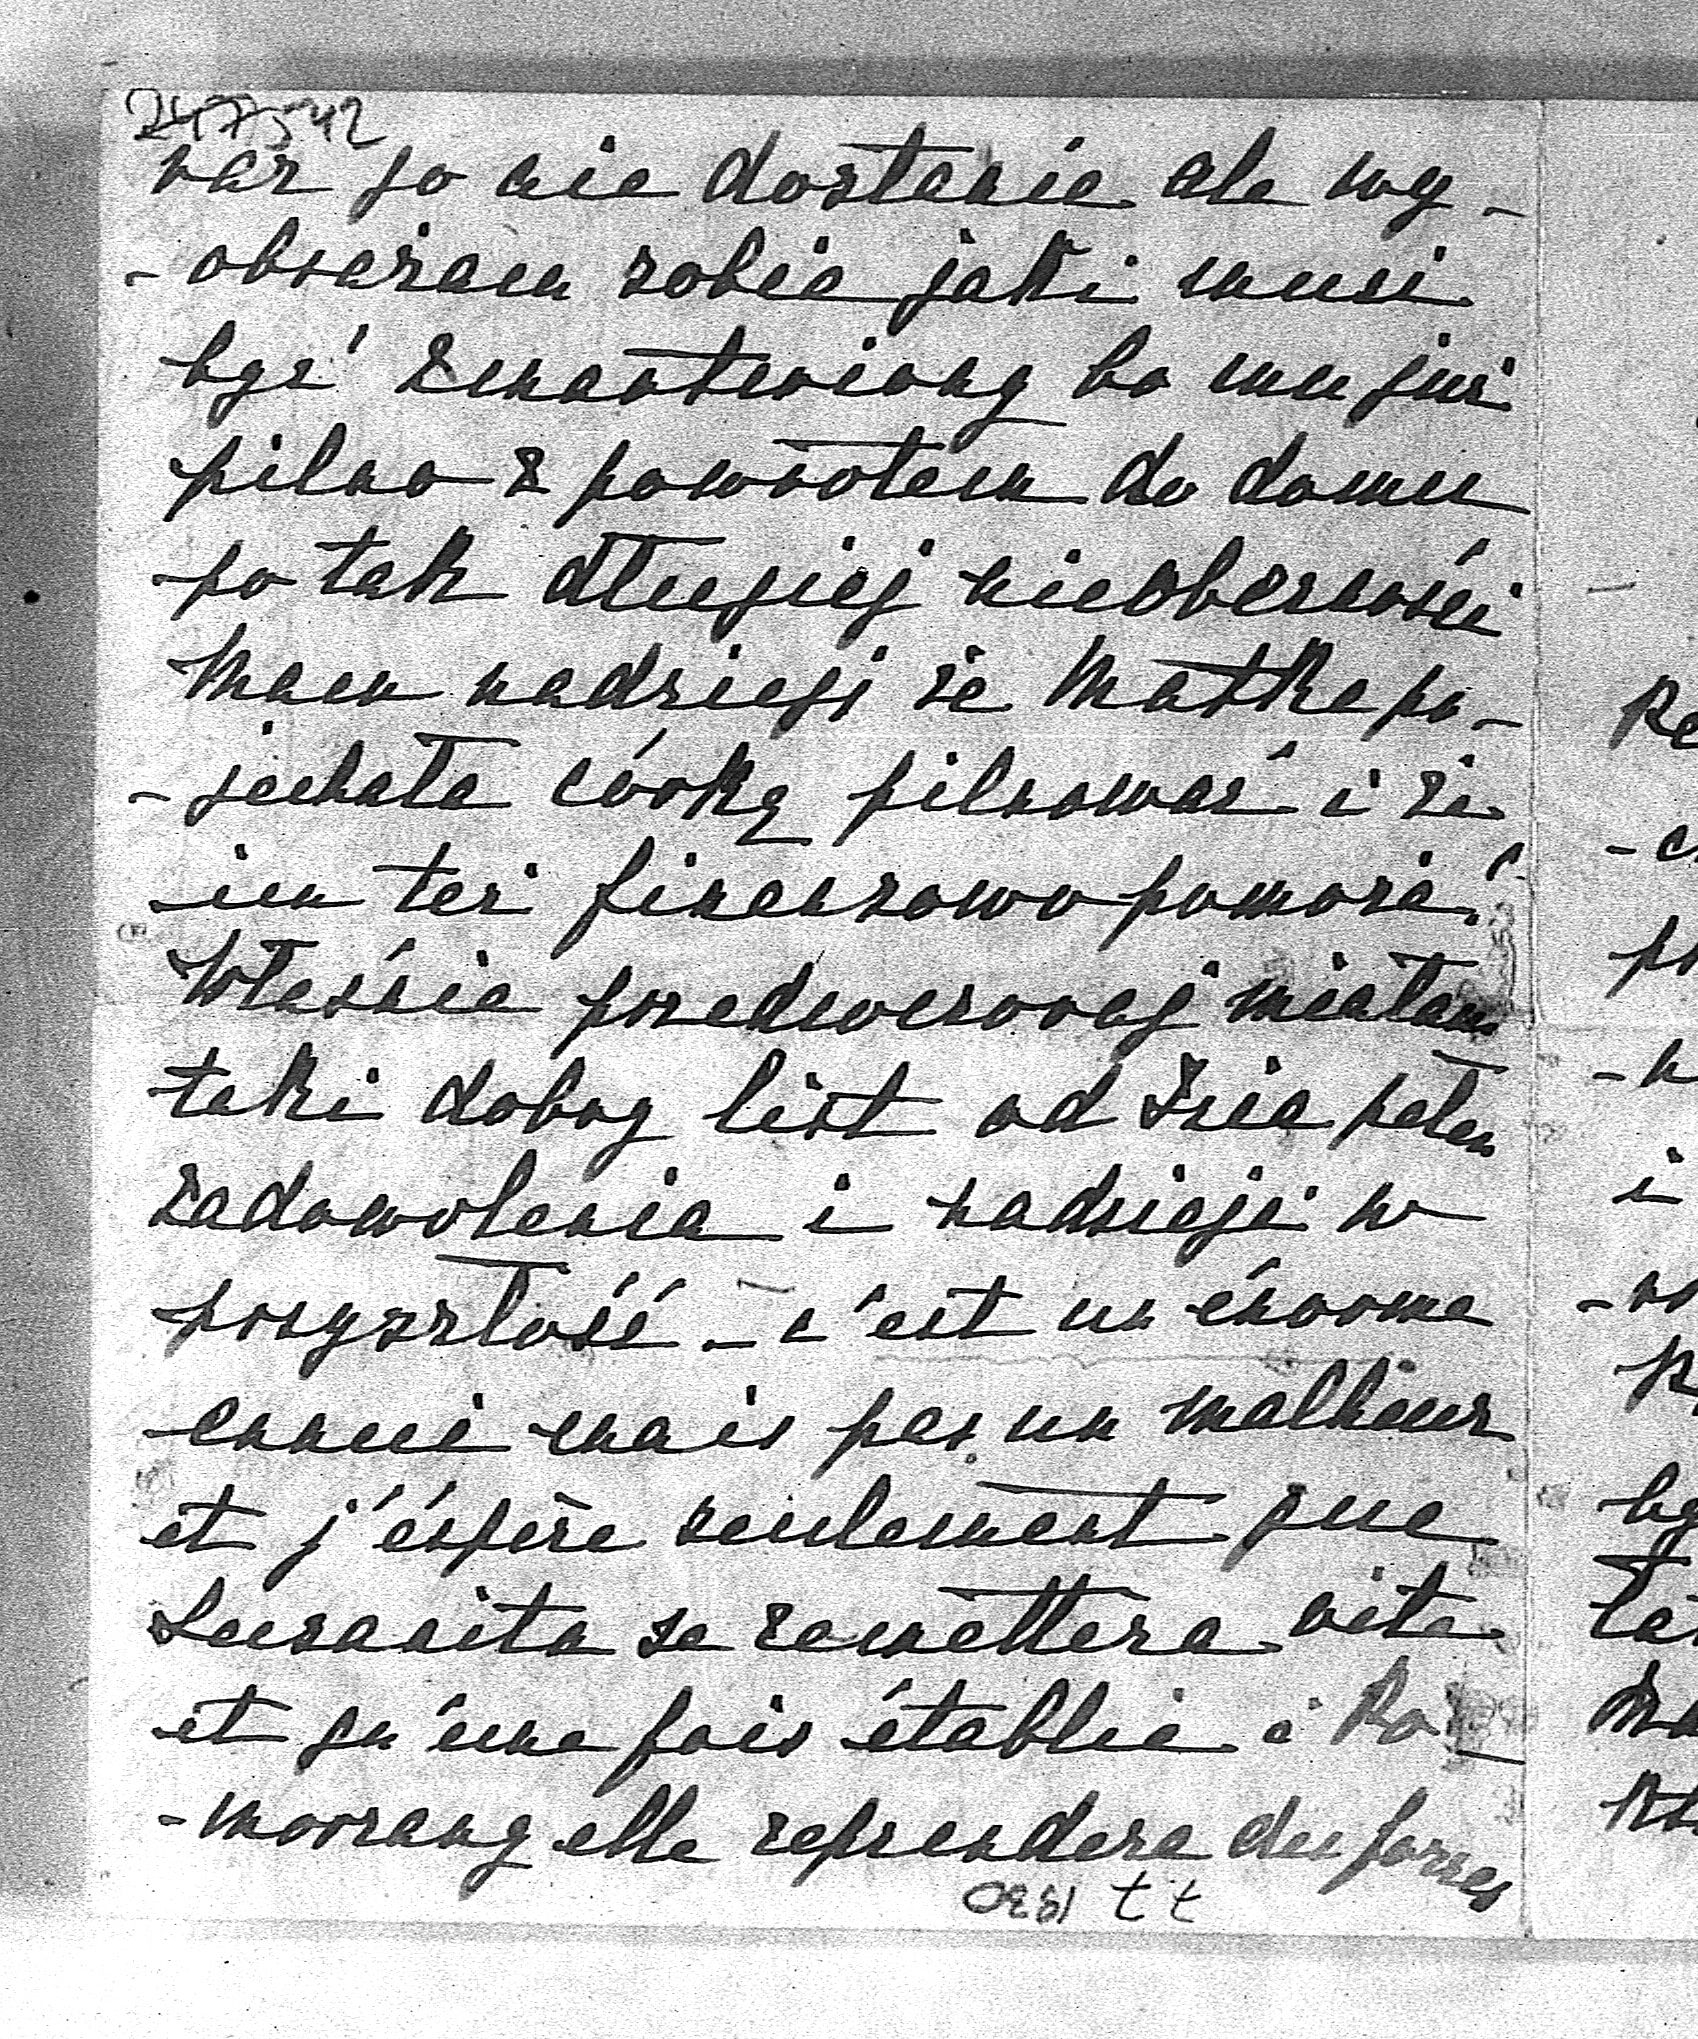 247542
nas go nie dostanie ale wy-
-obrażam sobie jaki musi
być zmartwiony bo mu już
pilno z powrotem do domu
po tak długiej nieobecności
Mam nadzieję że Matka po-
-jechała córkę pilnować i że
im też finansowo pomoże!
Właśnie przedwczoraj miałam
taki dobry list od Zzie pełen
zadowolenia i nadzieji w
przyszłość - c'est un énorme
ennui mais pas un malheur
et j'éspère seulement que
Susanita se remettera vite
et qu'une fois établie à Po-
-morzany elle reprendera des forces
7 7 1930